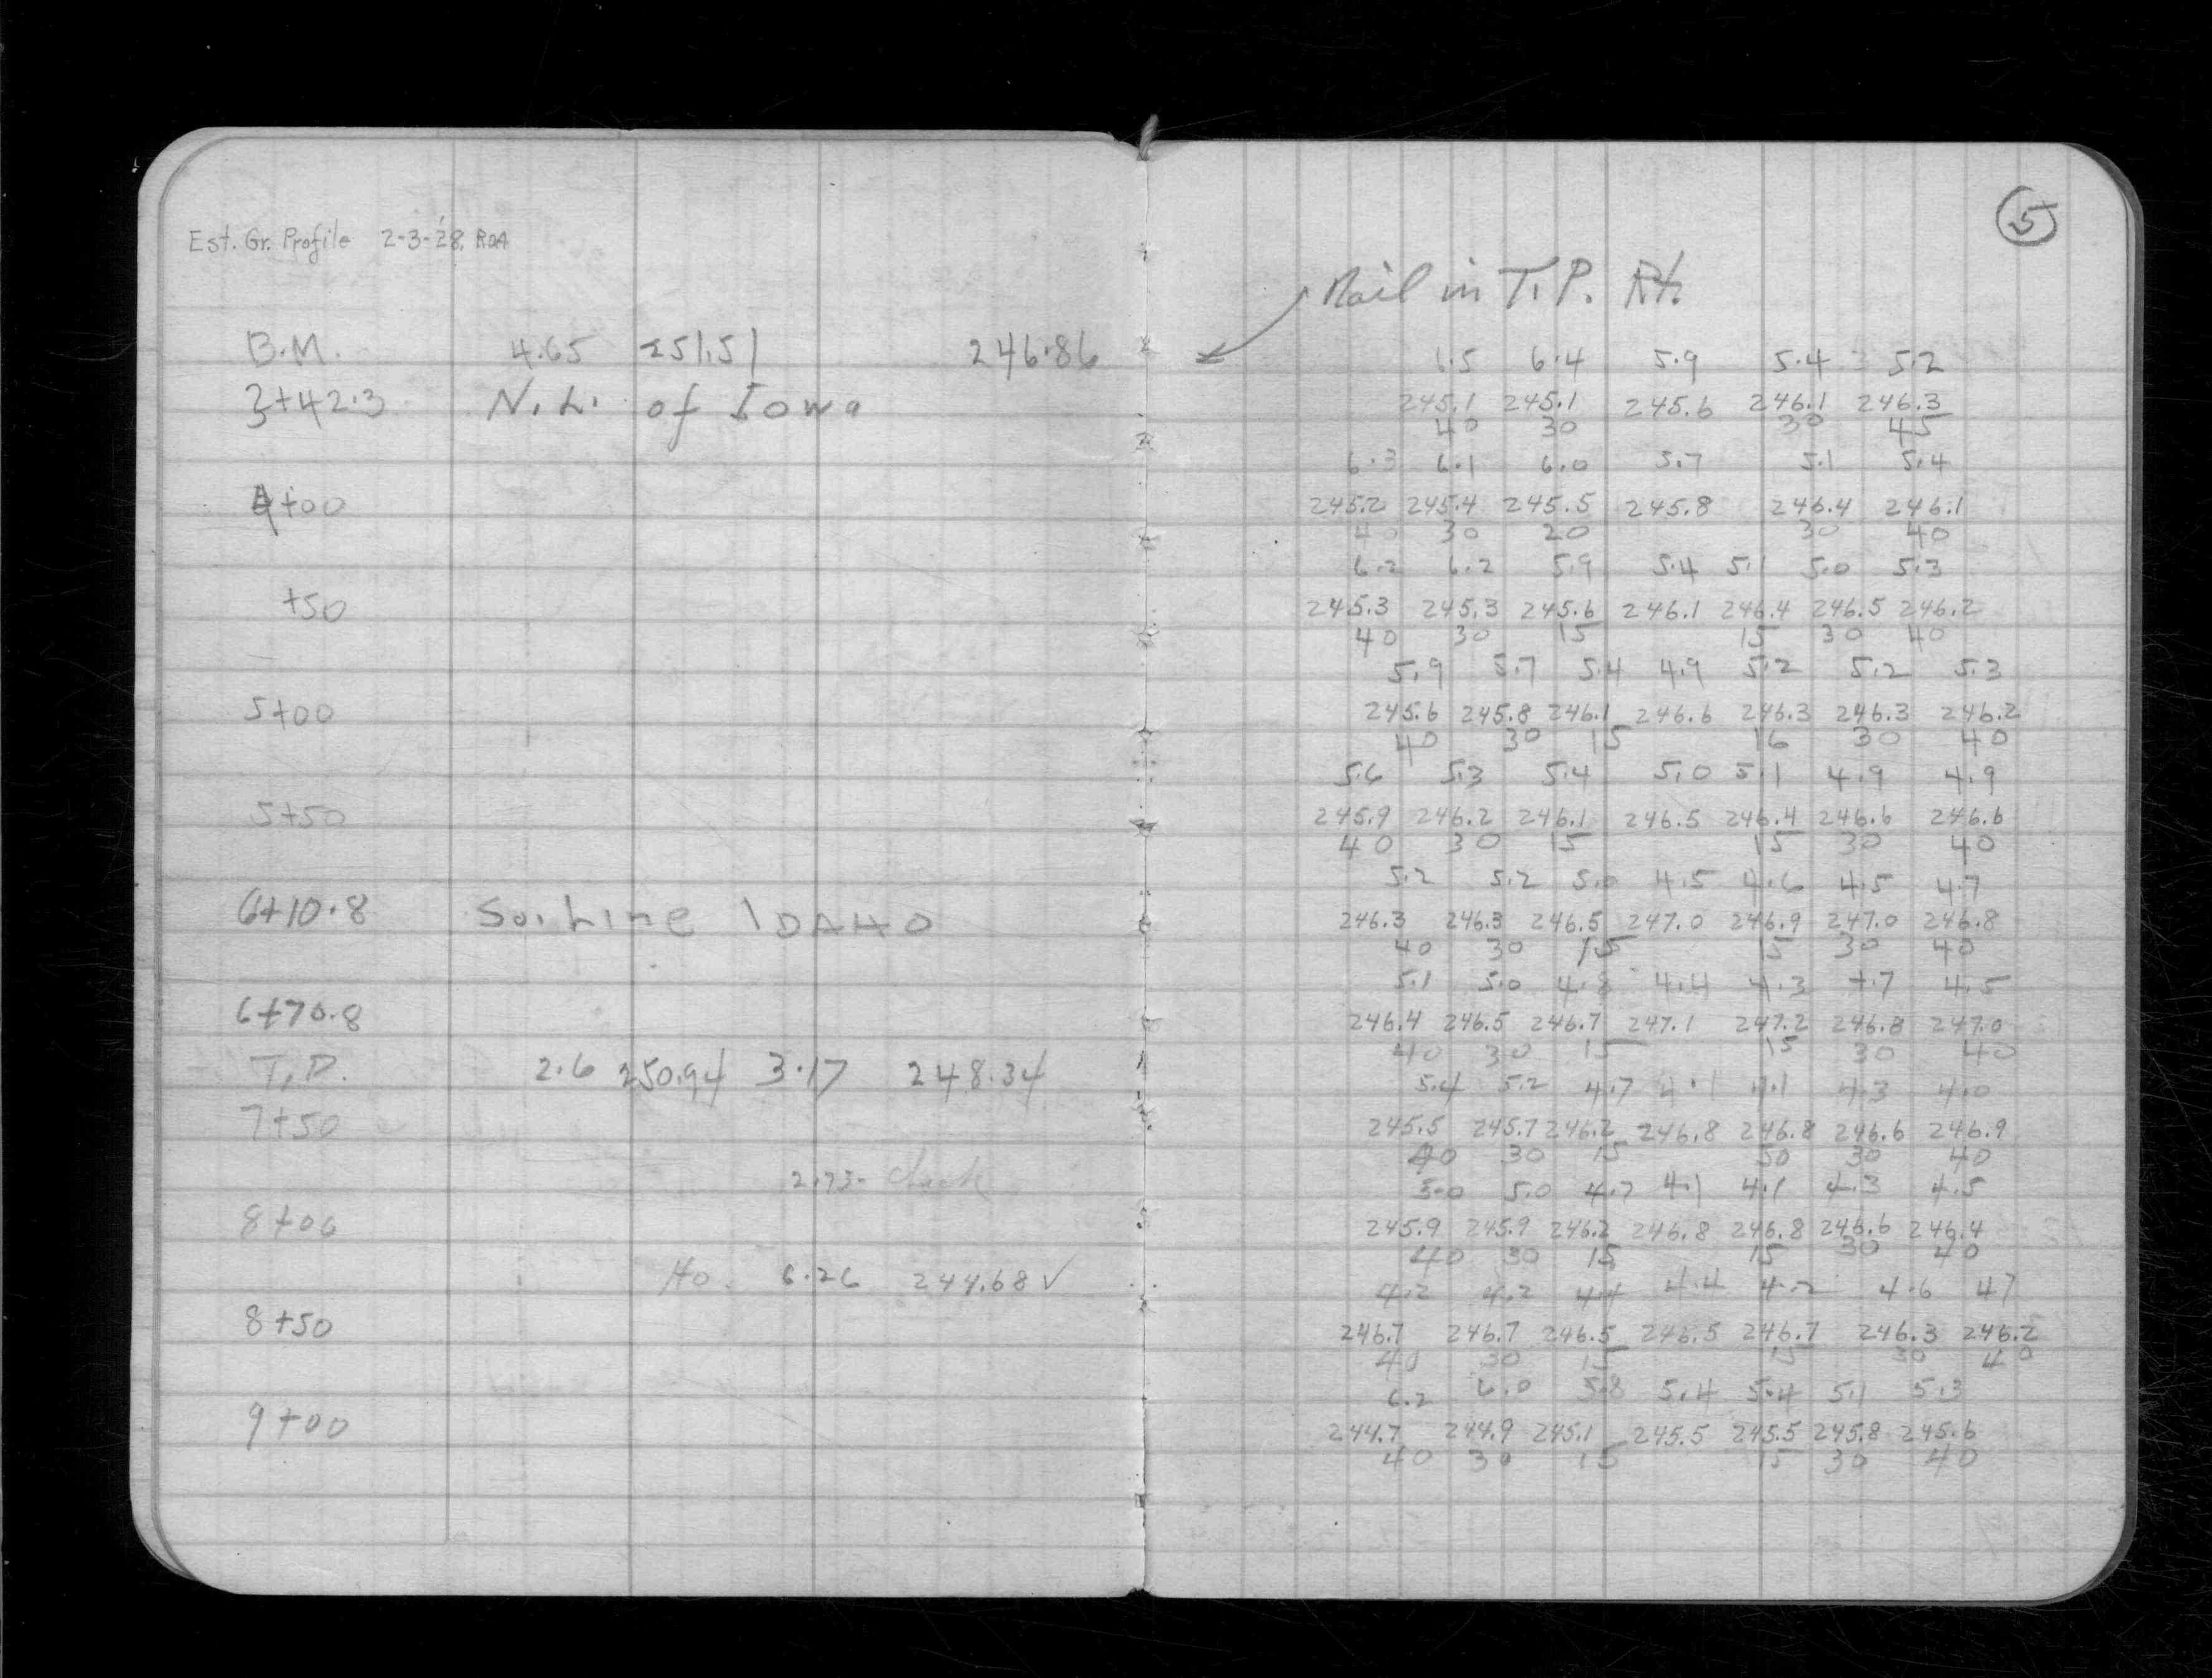 Est. Gr. Profile 2-3-'28. RDA
B.M. 4.65 251.51 246.86
3+42.3 N.L. of Iowa
4+00
+50
5+00
5+50
6+10.8 So. Line IDAHO
6+70.8
T.P. 2.6 250.94 3.17 248.34
7+50
2.73 - check
8+00
Ho. 6.26 244.68 ✓
8+50
9+00
5
Nail in T.P. Rt.
6.5 6.4 5.9 5.4 5.2
245.1 245.1 245.6 246.1 246.3
40 30 30 45
6.3 6.1 6.0 5.7 5.1 5.4
245.2 245.4 245.5 245.8 246.4 246.1
40 30 20 30 40
6.2 6.2 5.9 5.4 5.1 5.0 5.3
245.3 245.3 245.6 246.1 246.4 246.5 246.2
40 30 15 15 30 40
5.9 5.7 5.4 4.9 5.2 5.2 5.3
245.6 245.8 246.1 246.6 246.3 246.3 246.2
40 30 15 16 30 40
5.6 5.3 5.4 5.0 5.1 4.9 4.9
245.9 246.2 246.1 246.5 246.4 246.6 246.6
40 30 15 15 30 40
5.2 5.2 5.0 4.5 4.6 4.5 4.7
246.3 246.3 246.5 247.0 246.9 247.0 246.8
40 30 15 15 30 40
5.1 5.0 4.8 4.4 4.3 4.7 4.5
246.4 246.5 246.7 247.1 247.2 246.8 247.0
40 30 15 15 30 40
5.4 5.2 4.7 4.1 4.1 4.3 4.0
245.5 245.7 246.2 246.8 246.8 246.6 246.9
40 30 15 50 30 40
5.0 5.0 4.7 4.1 4.1 4.3 4.5
245.9 245.9 246.2 246.8 246.8 246.6 246.4
40 30 15 15 30 40
4.2 4.2 4.4 4.4 4.2 4.6 4.7
246.7 246.7 246.5 246.5 246.7 246.3 246.2
40 30 15 15 30 40
6.2 6.0 5.8 5.4 5.4 5.1 5.3
244.7 244.9 245.1 245.5 245.5 245.8 245.6
40 30 15 15 30 40